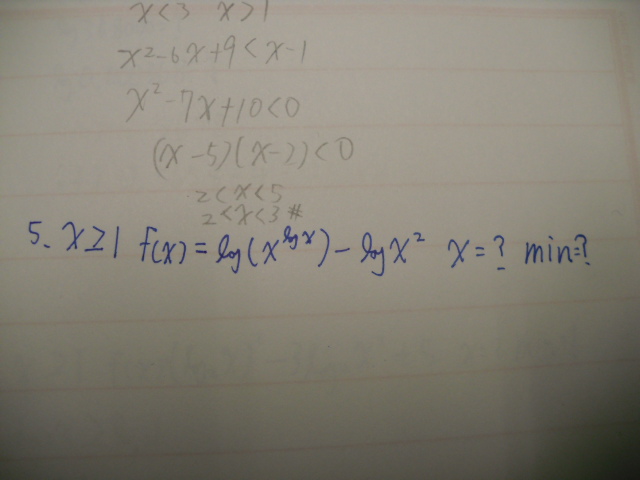 x<3 x>1
x²-6x+9<x-1
x²-7x+10<0
(x-5)(x-2)<0
2<x<5
2<x<3 #
5. x≥1 f(x)=log(x^logx)-logx² x=? min=?